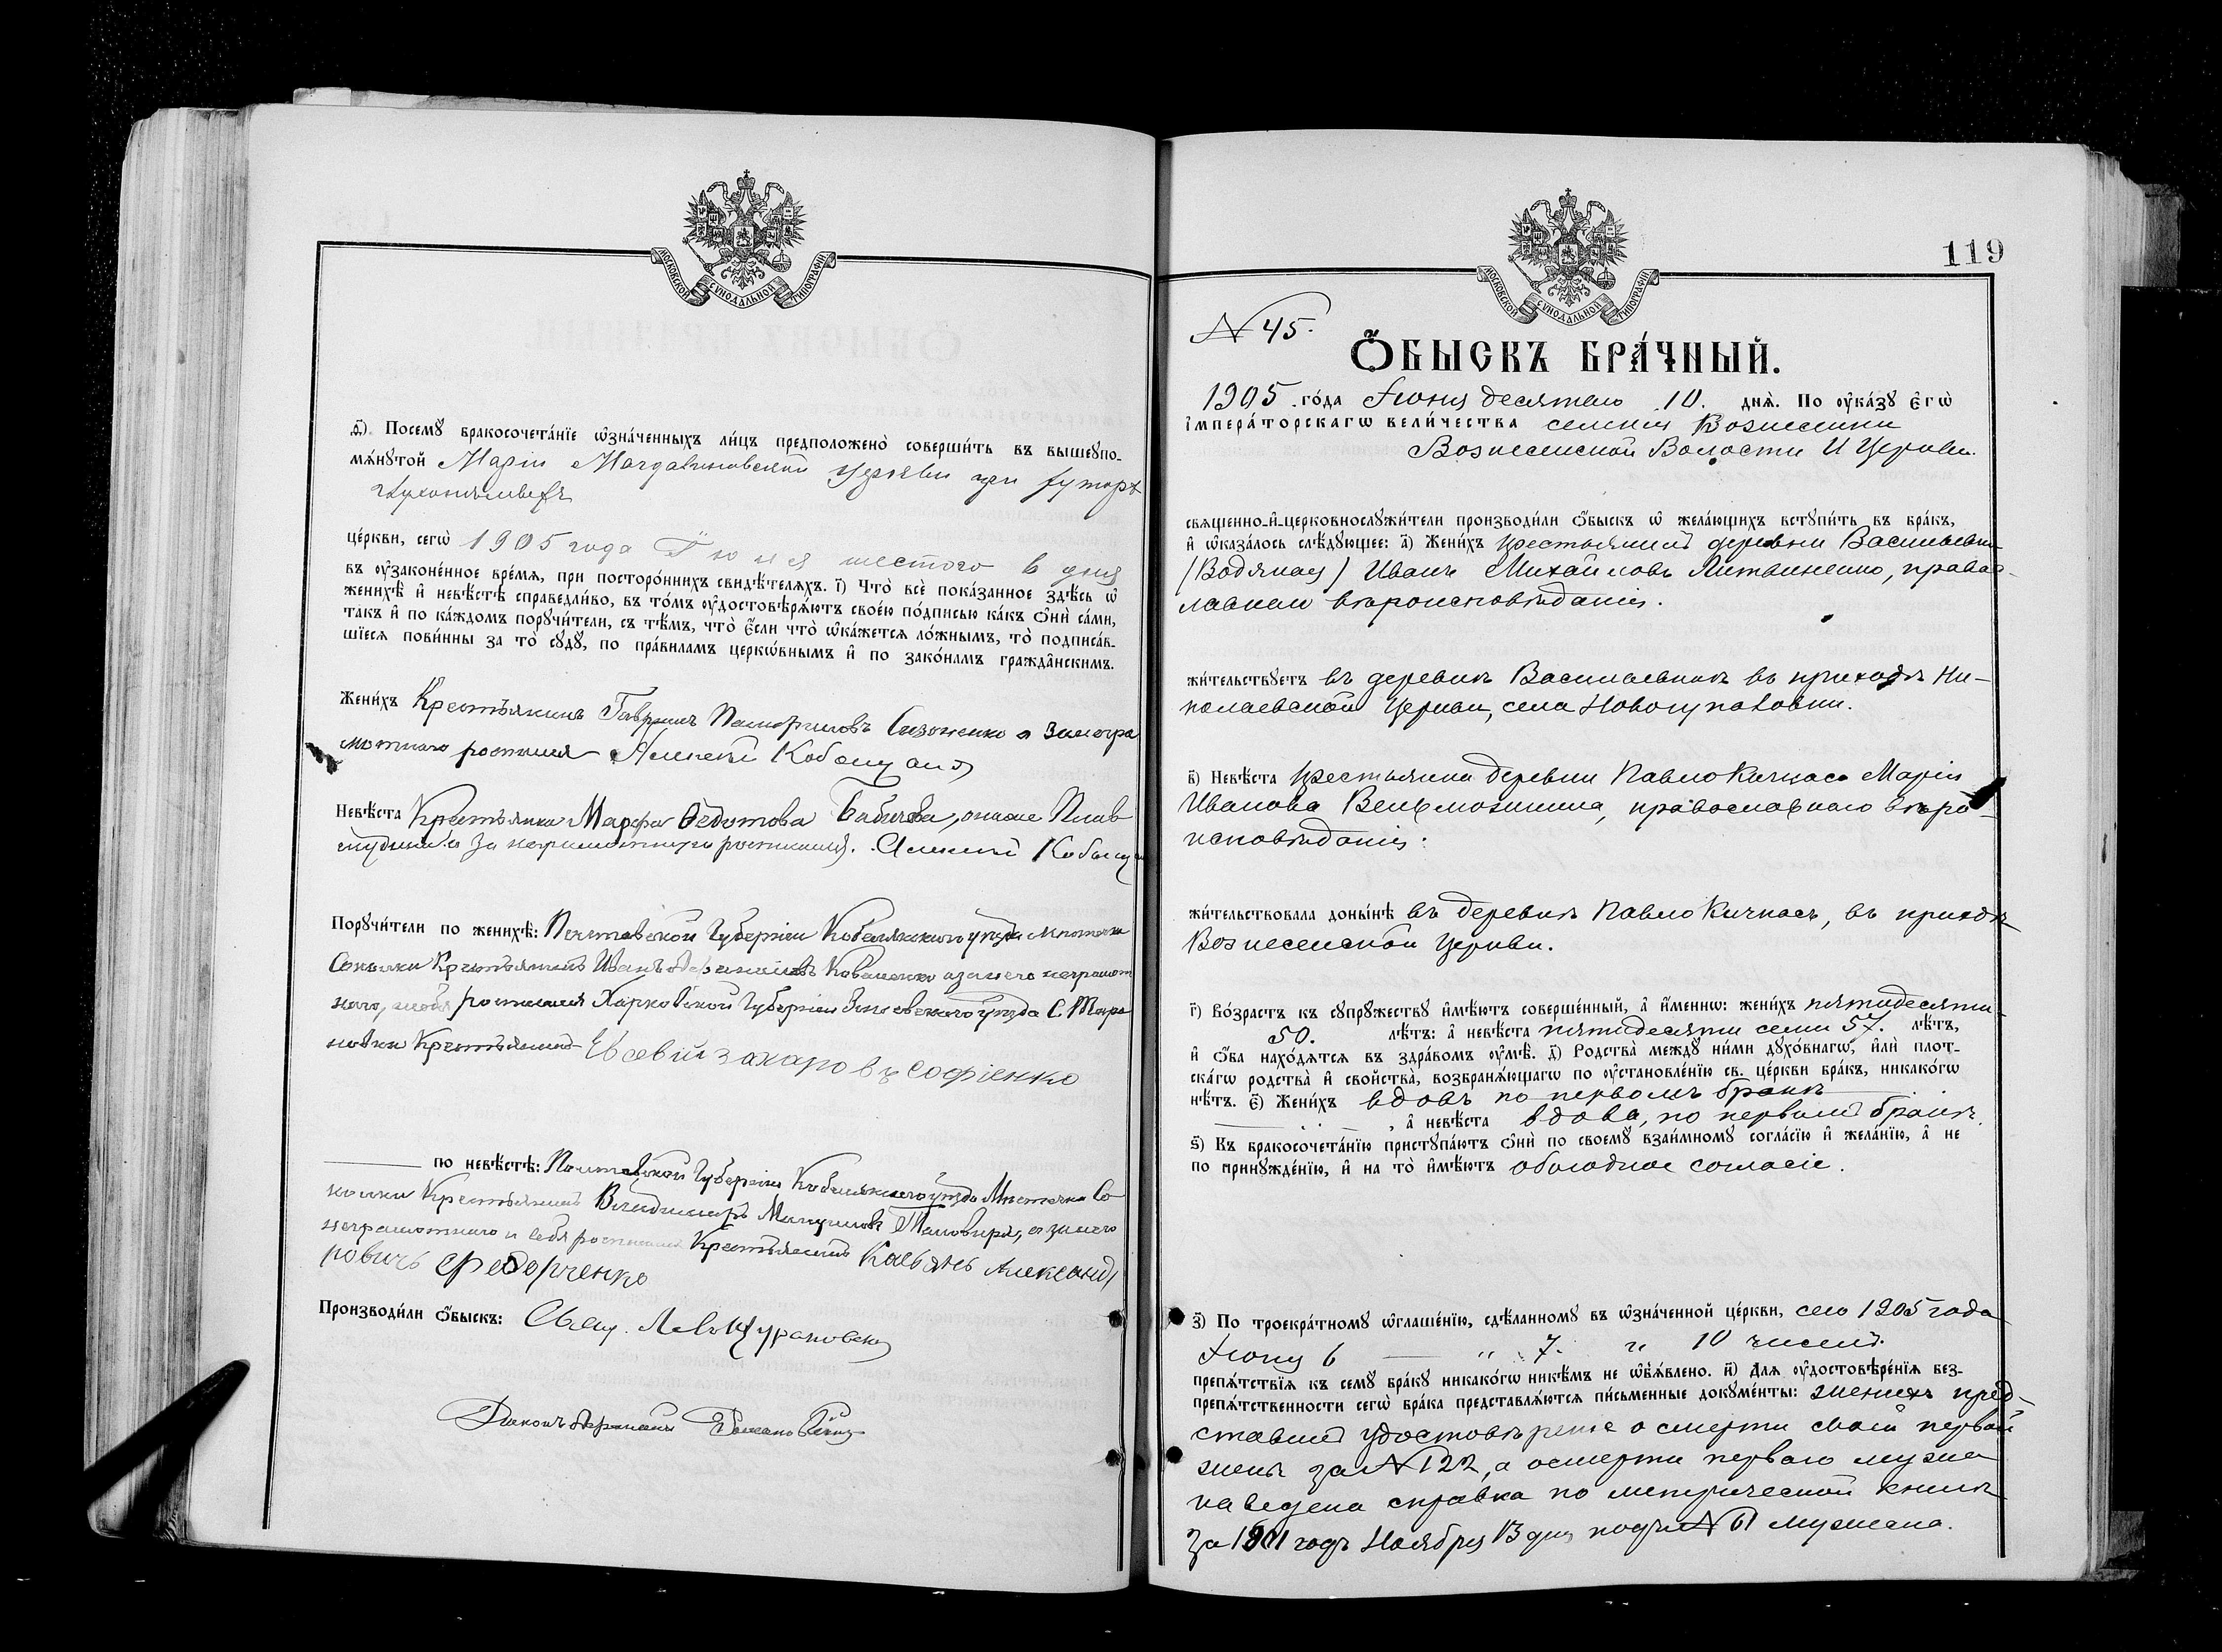 МОСКОВСКОЙ СѴНОДАЛЬНОЙ ТИПОГРАФІИ
ѳ҃) Посемꙋ̀ бракосочета́нїе ѡзна́ченныхъ ли́цъ предположено̀ соверши́ть въ вышеꙋпо-
мѧ́нꙋтой Марiи Магдалиновской церкви при хуторѣ
це́ркви, сегѡ̀ 1905 года Іюня шестого 6 дня
въ ᲂу҆законе́нное вре́мѧ, при посторо́ннихъ свидѣ́телѧхъ. і҃) Что̀ всѐ пока́занное здѣ́сь ѡ҆
женихѣ̀ и҆ невѣ́стѣ справедли́во, въ то́мъ ᲂу҆достовѣрѧ́ютъ свое́ю по́дписью ка́къ ѻ҆нѝ са́ми,
та́къ и҆ по ка́ждомъ порꙋчи́тели, съ тѣ́мъ, что̀ є҆́сли что̀ ѡ҆ка́жетсѧ ло́жнымъ, то̀ подписа́в-
шїесѧ пови́нны за то̀ сꙋдꙋ̀, по пра́виламъ церко́внымъ и҆ по зако́намъ гражда́нскимъ.
Жени́хъ Крестьянинъ Гавріилъ Памфиловъ Сизоненко а за негра
мотнаго росписался Алексѣй
Невѣ́ста Крестьянка Марфа Ѳедотова Бабичева, она же
за неграмотную росписался. Алексѣй
Порꙋчи́тели по женихѣ̀: Полтавской Губерніи Кобелякскаго уѣзда Мѣстечка
Соколки Крестьянинъ Иванъ Коваленко а за него неграмот
наго, и себя росписался Харьковской Губерніи Зміевского уѣзда С. Тара
новки Крестьянинъ Евсевій Захаровъ Софіенко
по невѣ́стѣ: Полтавской Губерніи Кобелякскаго уѣзда Мѣстечка Со
колки Крестьянинъ Владимиръ а за него
неграмотнаго и себя росписался Крестьянинъ Касьянъ Александ
ровичъ Федорченко
Производи́ли ѻ҆́быскъ: Свящ. Левъ
Діаконъ
119
МОСКОВСКОЙ СѴНОДАЛЬНОЙ ТИПОГРАФІИ
N 45.
Ѻ҆́БЫСКЪ БРА́ЧНЫЙ.
1905 го́да Іюня десятаго 10. днѧ̀. По ᲂу҆ка́зꙋ є҆гѡ̀
і҆мпера́торскагѡ вели́чества селенія Вознесенки
Вознесенской Волости и Церкви.
свѧще́нно-и҆-церковнослꙋжи́тели производи́ли ѻ҆́быскъ ѡ҆ жела́ющихъ встꙋпи́ть въ бра́къ,
и҆ ѡ҆каза́лось слѣ́дꙋющее: а҃) Жени́хъ крестьянинъ деревни Васильевки
(Водяная) Иванъ Михайловъ Литвиненко, правос-
лавнаго вѣроисповѣданія.
жи́тельствꙋетъ въ деревнѣ Васильевкѣ въ приходѣ Ни-
колаевской Церкви, села Новогупаловки.
в҃) Невѣ́ста крестьянка деревни Павло Кичкасъ Марія
Иванова Вельможина, православнаго вѣро-
исповѣданія.
жи́тельствовала доны́нѣ въ деревнѣ Павло Кичкасъ, въ приходѣ
Вознесенской Церкви.
г҃) Во́зрастъ къ сꙋпрꙋ́жествꙋ и҆мѣ́ютъ соверше́нный, а҆ и҆́меннѡ: жени́хъ пятидесяти
50. лѣ́тъ: а҆ невѣ́ста пятидесяти семи 57. лѣ́тъ,
и҆ ѻ҆́ба нахо́дѧтсѧ въ здра́вомъ ᲂу҆мѣ̀. д҃) Родства̀ междꙋ ни́ми дꙋхо́внагѡ, и҆лѝ плот-
ска́гѡ родства̀ и҆ сво́йства̀, возбранѧ́ющагѡ по ᲂу҆становле́нїю св. це́ркви бра́къ, никако́гѡ
нѣ́тъ. є҃) Жени́хъ вдовъ по первомъ бракѣ
, а҆ невѣ́ста вдова, по первомъ бракѣ.
ѕ҃) Къ бракосочета́нїю пристꙋпа́ютъ ѻ҆нѝ по своемꙋ̀ взаи́мномꙋ согла́сїю и҆ жела́нїю, а҆ не
по принꙋжде́нїю, и҆ на то̀ и҆мѣ́ютъ обоюдное согласіе.
з҃) По троекра́тномꙋ ѡ҆глаше́нїю, сдѣ́ланномꙋ въ ѡ҆зна́ченной це́ркви, сего 1905 года
Іюня 6 — " 7. " 10 числъ.
препѧ́тствїѧ къ семꙋ̀ бра́кꙋ никако́гѡ никѣ́мъ не ѡ҆б̾ѧ́влено. и҃) Для ᲂу҆достовѣре́нїѧ без-
препѧ́тственности сегѡ̀ бра́ка представлѧ́ютсѧ пи́сьменные докꙋме́нты: женихъ пред-
ставилъ удостовѣреніе о смерти своей первой
жены за N 122, а о смерти перваго мужа
наведена справка по метрической книгѣ
за 1901 годъ Ноября 13 дня подъ N 61 мужеска.